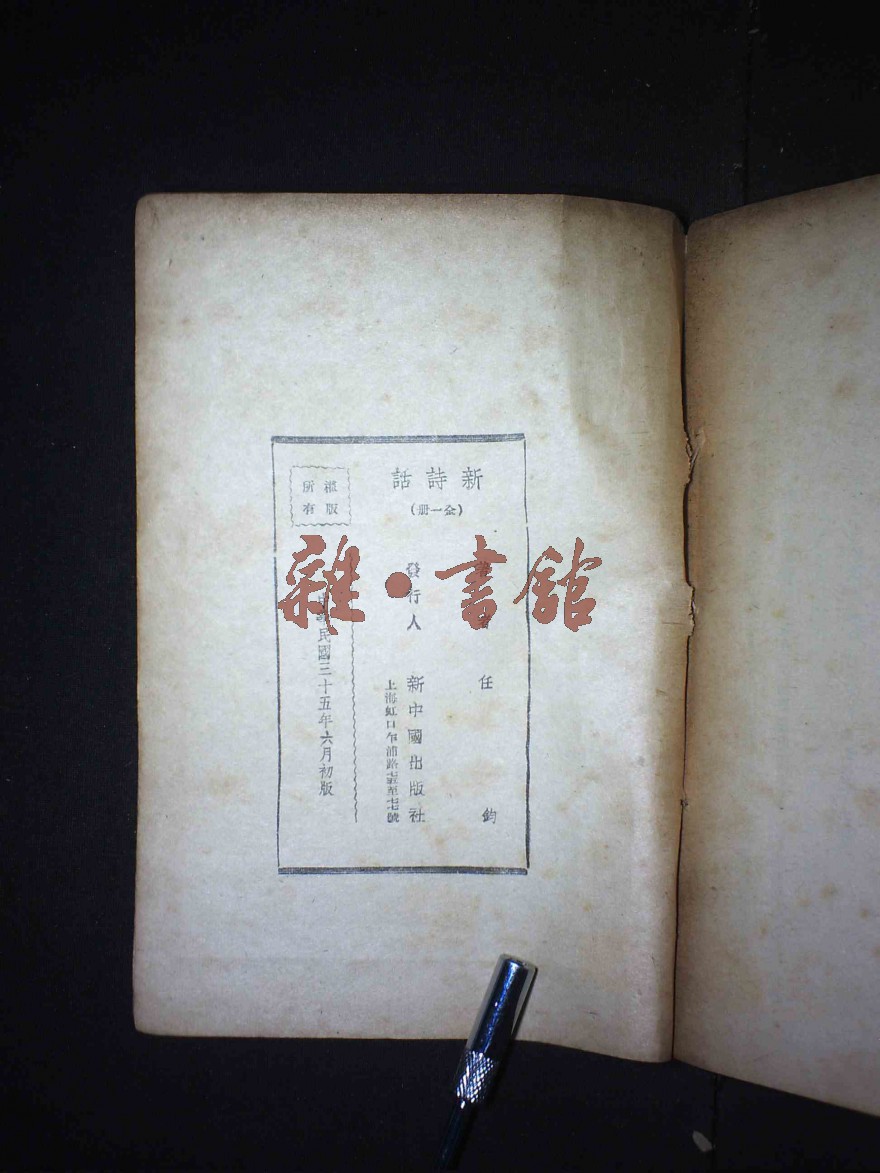 新詩話
(全一冊)
著者 任鈞
發行人 新中國出版社
上海虹口乍浦路
民國三十五年六月初版
版權所有
雜·書館